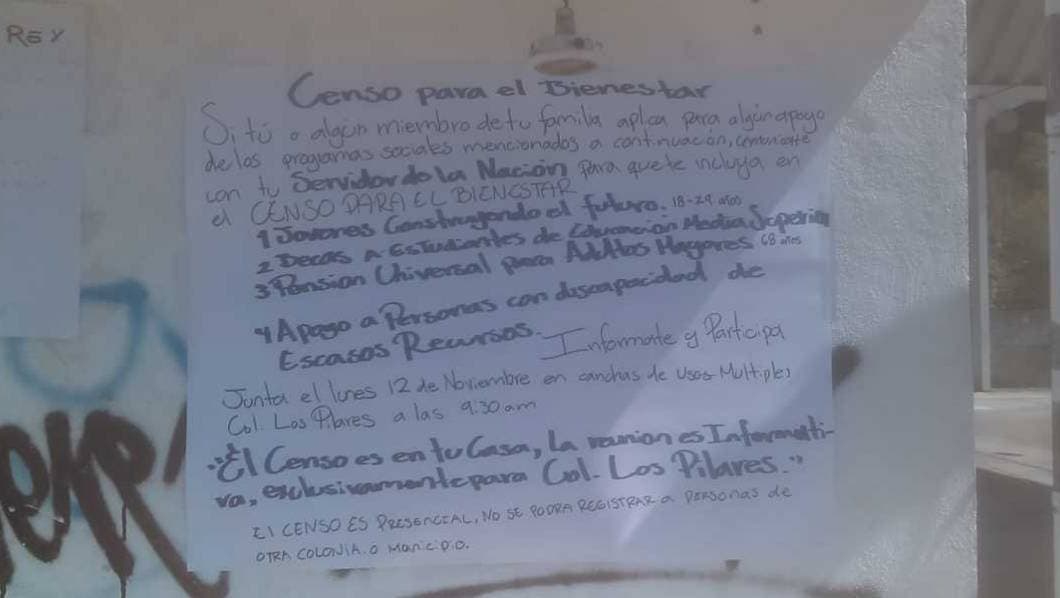 REY
Censo para el Bienestar
Si tú o algún miembro de tu familia aplica para algún apoyo
de los programas sociales mencionados a continuación,
con tu Servidor de la Nación para que te incluya en
el CENSO PARA EL BIENESTAR
1 Jovenes Construyendo el futuro. 18-29 años
2 Becas A Estudiantes de Educación Media Superior
3 Pension Universal para Adultos Mayores 68 años
4 Apoyo a Personas con discapacidad de
Escasos Recursos.
Informate y Participa
Junta el lunes 12 de Noviembre en canchas de Usos Multiples
Col. Los Pilares a las 9:30 am
"El Censo es en tu Casa, La reunion es Informati-
va, exclusivamente para Col. Los Pilares."
El CENSO ES PRESENCIAL, NO SE PODRA REGISTRAR a PERSONAS de
OTRA COLONIA o Municipio.